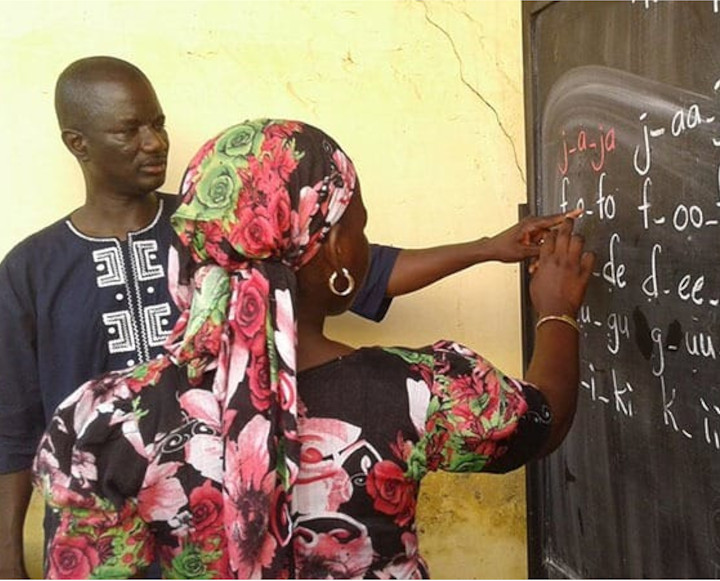 j-a-ja j-aa-
f-o-fo f-oo-
-de d-ee-
u-gu g-uu
-i-ki k-ii